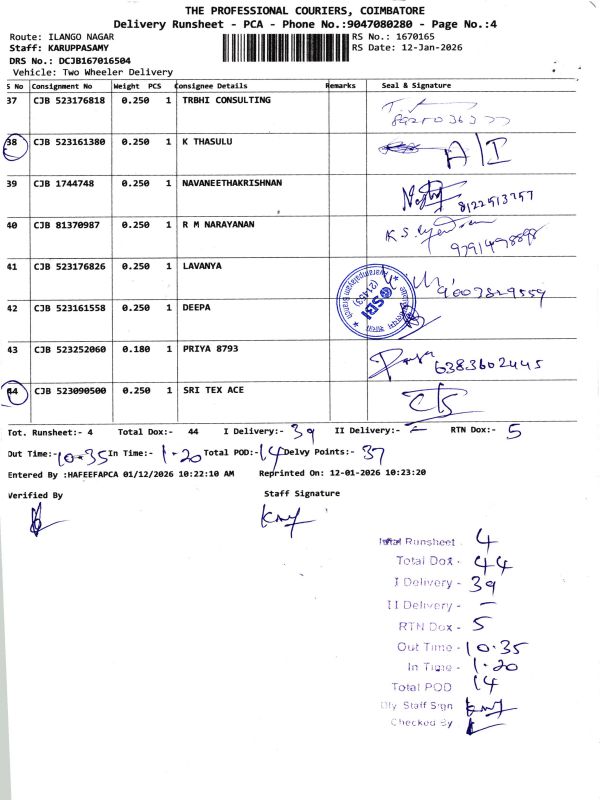 THE PROFESSIONAL COURIERS, COIMBATORE
Delivery Runsheet - PCA - Phone No.:9047080280 - Page No.:4
Route: ILANGO NAGAR RS No.: 1670165
Staff: KARUPPASAMY RS Date: 12-Jan-2026
DRS No.: DCJB167016504
Vehicle: Two Wheeler Delivery
S No Consignment No Weight PCS Consignee Details Remarks Seal & Signature
37 CJB 523176818 0.250 1 TRBHI CONSULTING
38 CJB 523161380 0.250 1 K THASULU A/I
39 CJB 1744748 0.250 1 NAVANEETHAKRISHNAN 8122513757
40 CJB 81370987 0.250 1 R M NARAYANAN 9791498898
41 CJB 523176826 0.250 1 LAVANYA 9003829559
SBI
42 CJB 523161558 0.250 1 DEEPA
43 CJB 523252060 0.180 1 PRIYA 8793 6383602445
44 CJB 523090500 0.250 1 SRI TEX ACE
Tot. Runsheet:- 4 Total Dox:- 44 I Delivery:- 39 II Delivery:- – RTN Dox:- 5
Out Time:- 10.35 In Time:- 1.20 Total POD:- 14 Delvy Points:- 37
Entered By :HAFEEFAPCA 01/12/2026 10:22:10 AM Reprinted On: 12-01-2026 10:23:20
Verified By Staff Signature
Total Runsheet - 4
Total Dox - 44
I Delivery - 39
II Delivery - –
RTN Dox - 5
Out Time - 10.35
In Time - 1.20
Total POD 14
Dly. Staff Sign
Checked By